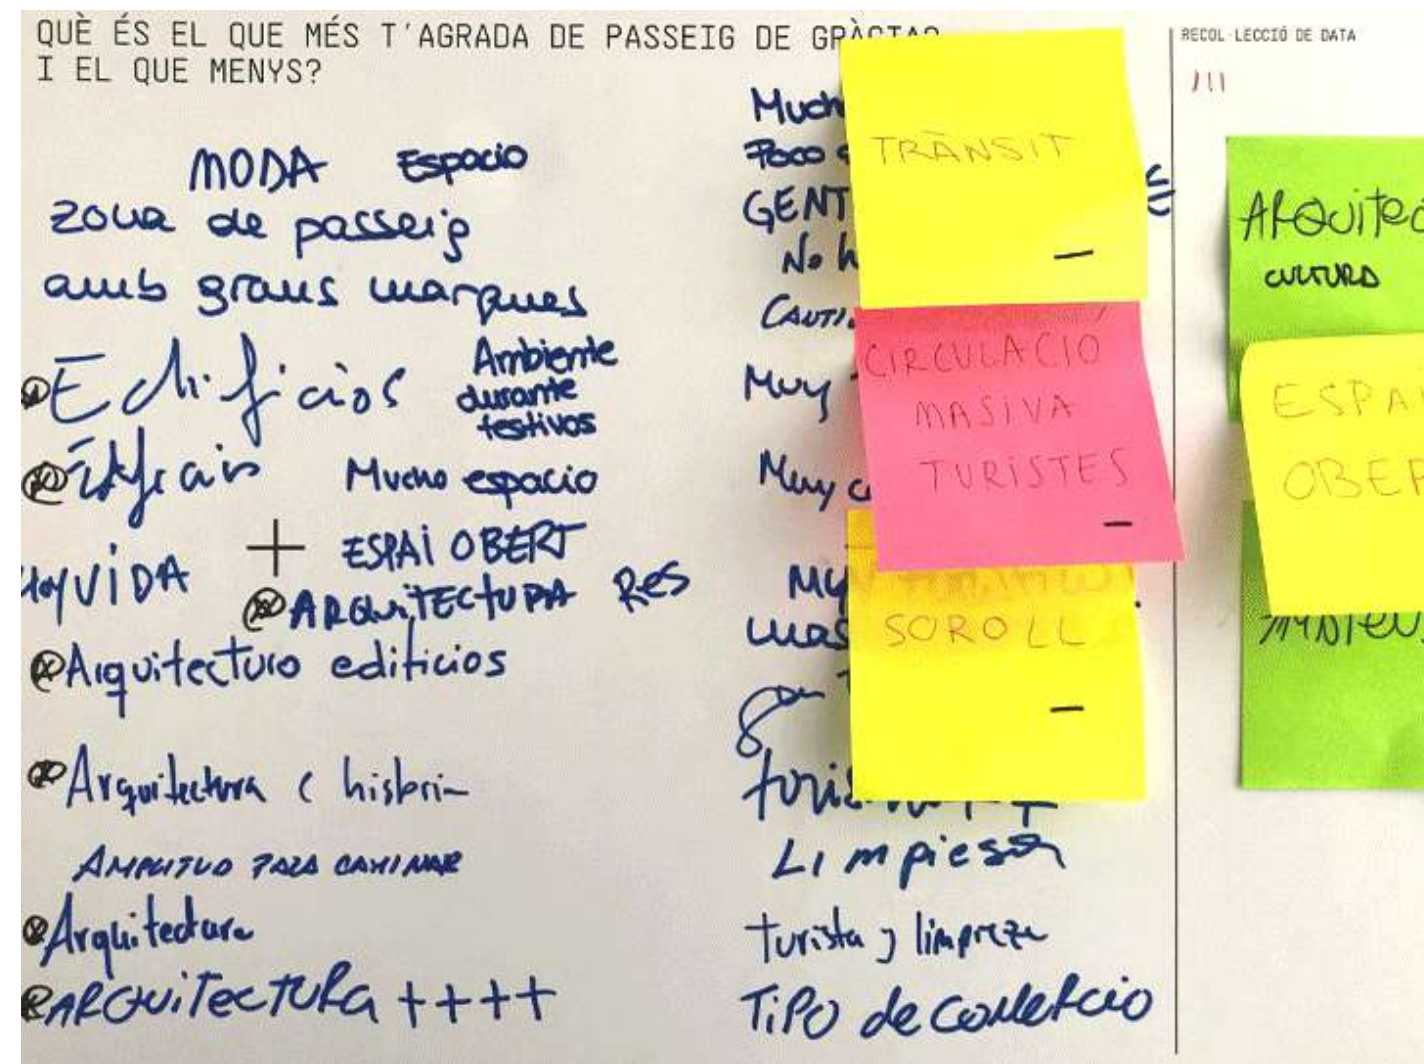 QUÈ ÉS EL QUE MÉS T'AGRADA DE PASSEIG DE GRÀCIA?
I EL QUE MENYS?
MODA Espacio
zona de passeig
amb grans marques
Edificios
Ambiente
durante
festivos
Mucho espacio
+ ESPAI OBERT
VIDA
ARQUITECTURA Res
Arquitectura edificios
Arquitectura
AMPLITUD PARA CAMINAR
Arquitectura
ARQUITECTURA ++++
Much
Poco
GENT
No h
CAUTI
Muy
Muy c
MU
mas
turis
Limpiesa
turista y limpieza
TIPO de comercio
TRÀNSIT
–
CIRCULACIÓ
MASIVA
TURISTES
–
SOROLL
–
RECOL·LECCIÓ DE DATA
III
ARQUITEC
CULTURA
ESPAI
OBER